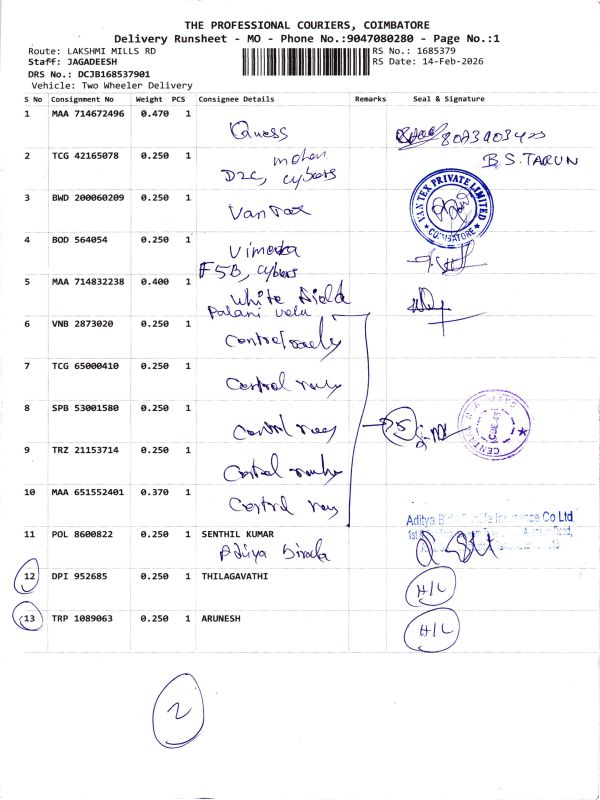 THE PROFESSIONAL COURIERS, COIMBATORE
Delivery Runsheet - MO - Phone No.:9047080280 - Page No.:1
Route: LAKSHMI MILLS RD
RS No.: 1685379
Staff: JAGADEESH
RS Date: 14-Feb-2026
DRS No.: DCJB168537901
Vehicle: Two Wheeler Delivery
S No Consignment No Weight PCS Consignee Details Remarks Seal & Signature
1 MAA 714672496 0.470 1 Quess
2 TCG 42165078 0.250 1 mohan B.S.TARUN
D2C, cybers
3 BWD 200060209 0.250 1 Van Tax
VANTEX PRIVATE LIMITED COIMBATORE
4 BOD 564054 0.250 1
F5B, cybers
5 MAA 714832238 0.400 1 White
Palani velu
6 VNB 2873020 0.250 1
7 TCG 65000410 0.250 1 Central
8 SPB 53001580 0.250 1 Central 5
9 TRZ 21153714 0.250 1 Central
10 MAA 651552401 0.370 1 Central
Aditya Insurance Co Ltd
11 POL 8600822 0.250 1 SENTHIL KUMAR
Aditya Birla
12 DPI 952685 0.250 1 THILAGAVATHI H/L
13 TRP 1089063 0.250 1 ARUNESH H/L
2